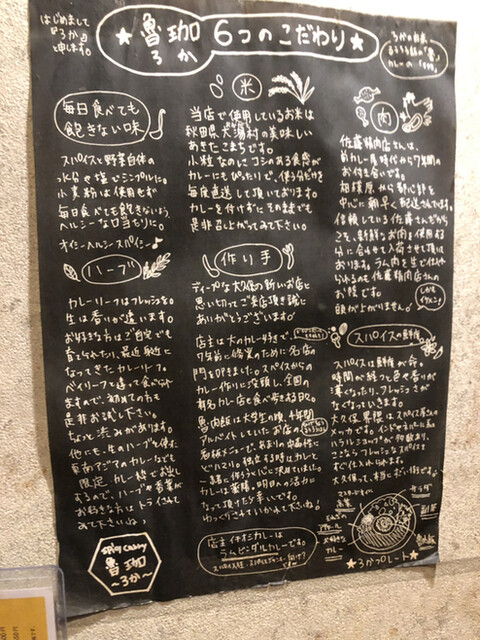 はじめまして
『ろか』と
申します。
★魯珈 6つのこだわり★
ろか
カレーの
毎日食べても
飽きない味
スパイスと野菜自体の
水分や塩でシンプルに。
小麦粉は使用せず
毎日食べても飽きないよう
ヘルシーな口当たりに。
オイシーヘルシースパイシー♪
米
当店で使用しているお米は
秋田県大潟村の美味しい
あきたこまちです。
小粒なのにコシのある食感が
カレーにもぴったりで、使う分だけを
毎度直送して頂いております。
カレーを付けずにそのままでも
是非召し上がってみて下さい。
肉
佐藤精肉店さんは、
前カレー屋時代から7年間の
お付き合いです。
相模原から都心部を
中心に朝早く配送されています。
信頼している佐藤さんだから
こそ、新鮮なお肉を使用する
分に合わせて入荷させて頂いて
おります。ラム肉を生で仕入れ
られるのも佐藤精肉店さんの
お陰です。
頭が上がりません。
しかも
イケメン!
ハーブ
カレーリーフはフレッシュを。
生は香りが違います。
お好きな方はご自宅でも
育てられたり、最近身近に
なってきたカレーリーフ。
ベイリーフと違って食べられ
ますので、初めての方も
是非お試し下さい。
他にも、生のハーブを使た
東南アジアのカレーなども
限定カレー枠でお出し
するので、ハーブや香菜が
お好きな方はトライされて
みて下さいね♪
作り手
ディープな大久保の新しいお店を
思い切ってご来店頂き誠に
ありがとうございます。
店主は大のカレー好きで、
7年前に修業のために名店の
門を叩きました。スパイスからの
カレー作りに没頭し、全国の
有名カレー店を食べ歩きする日々。
魯肉飯は大学生の頃、4年間
アルバイトしていたお店の
看板メニューで、あまりの中毒性に
ビックリ。独立する時はカレーと
一緒に作ろうと心に決めていました。
カレーは薬膳。明日への活力に
なって頂けたら幸いです。
ゆっくりされていかれて下さいね。
スパイスの鮮度
スパイスは鮮度が命。
時間が経つと色や香りが
薄くなったり、フレッシュさが
なくなっていきます。
大久保界隈はスパイス屋さんの
ハラルショップが多数あり、
いつもフレッシュなスパイスを
すぐ仕入れられます。
大久保って、本当にだい好きです。
店主イチオシカレーは
ラムビンダルカレーです。
spicy curry
魯珈
～ろか～
サラダ
副菜
魯肉飯
お好きな
カレー
★ろかプレート★